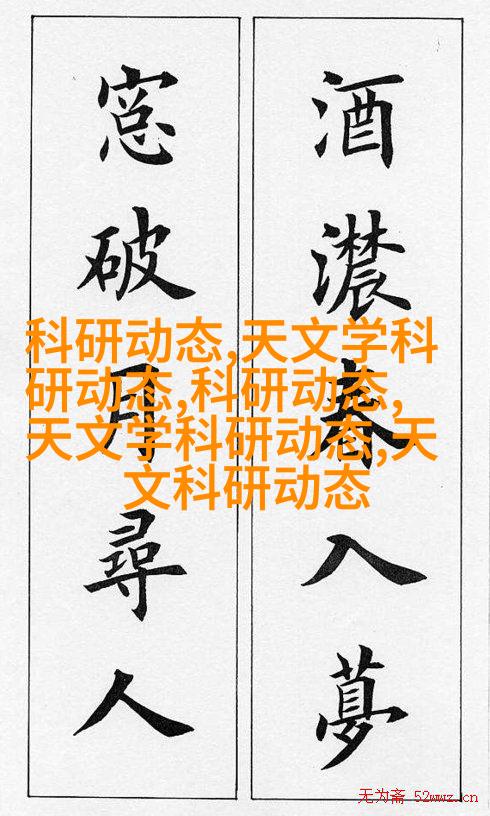 酒濃春入夢
窓破月尋人
科研动态,天文学科
研动态,科研动态,
天文学科研动态,天
文科研动态
无为斋 52wwz.cn